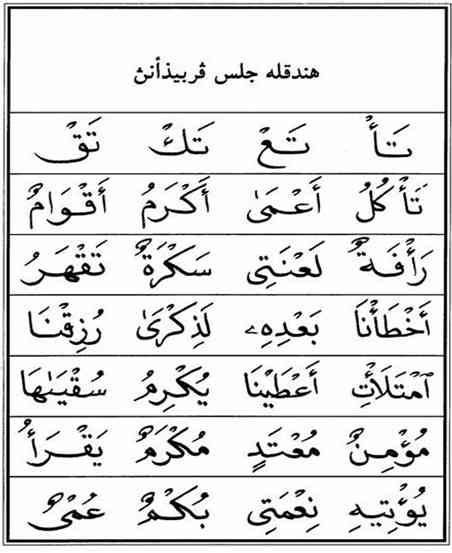 هندقله جلس ڤربيذأنڽ
تَأْ تَعْ تَكْ تَقْ
تَأْكُلُ أَعْمَىٰ أَكْرَمُ أَقْوَامٌ
رَأْفَةٌ لَعْنَتِى سَكْرَةٌ تَقْهَرُ
أَخْطَأْنَا بَعْدِهِۦ لَذِكْرَىٰ رُزِقْنَا
ٱمْتَلَأْتِ أَعْطَيْنَا يُكْرِمُ سُقْيَـٰهَا
مُؤْمِنٌ مُعْتَدٍ مُكْرَمٌ يَقْرَأُ
يُؤْتِيهِ نِعْمَتِى بُكْمٌ عُمْىٌ